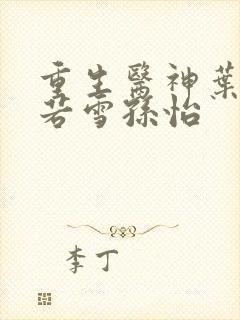 重生醫神葉
若雪孫怡
李丁